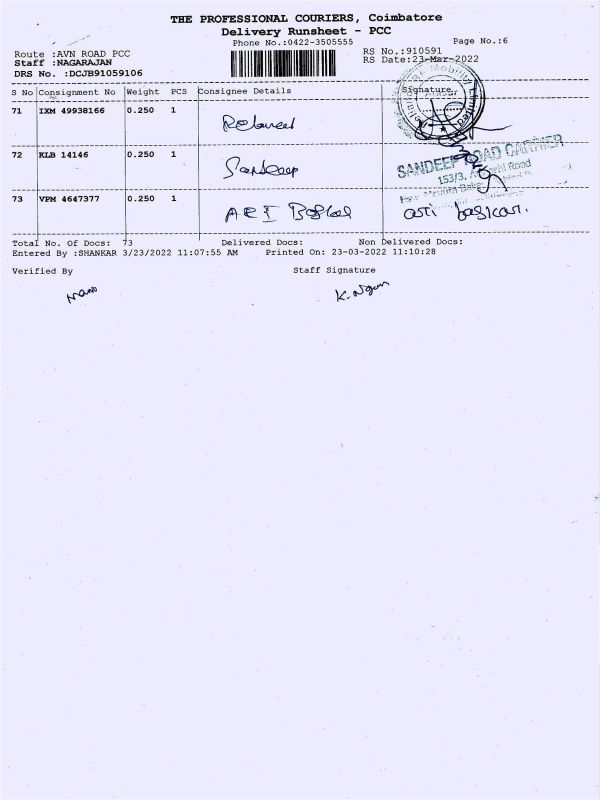 THE PROFESSIONAL COURIERS, Coimbatore
Delivery Runsheet - PCC
Phone No.:0422-3505555 Page No.:6
Route :AVN ROAD PCC RS No.:910591
Staff :NAGARAJAN RS Date:23-Mar-2022
DRS No. :DCJB91059106
S No Consignment No Weight PCS Consignee Details Signature
71 IXM 49938166 0.250 1
72 KLB 14146 0.250 1 Sandeep
SANDEEP ROAD CARRIER
153/3, Road
73 VPM 4647377 0.250 1 ARI Baskar ari baskar.
Total No. Of Docs: 73 Delivered Docs: Non Delivered Docs:
Entered By :SHANKAR 3/23/2022 11:07:55 AM Printed On: 23-03-2022 11:10:28
Verified By Staff Signature